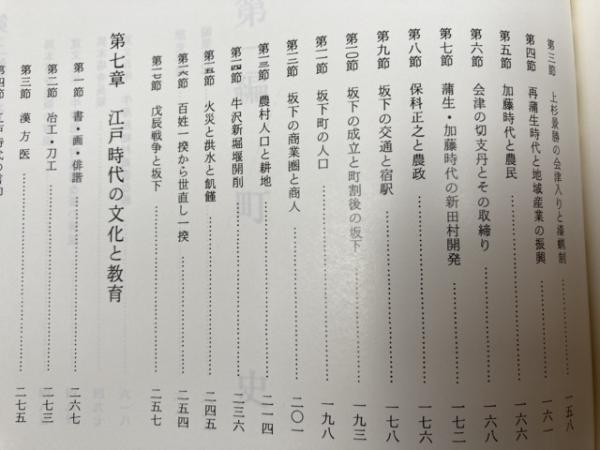 第三節 上杉景勝の会津入りと漆蠟制 一五八
第四節 再蒲生時代と地域産業の振興 一六一
第五節 加藤時代と農民 一六六
第六節 会津の切支丹とその取締り 一六八
第七節 蒲生・加藤時代の新田村開発 一七二
第八節 保科正之と農政 一七六
第九節 坂下の交通と宿駅 一七八
第一〇節 坂下の成立と町割後の坂下 一九三
第一一節 坂下町の人口 一九八
第一二節 坂下の商業圏と商人 二〇一
第一三節 農村人口と耕地 二一四
第一四節 牛沢新堀堰開削 二三六
第一五節 火災と洪水と飢饉 二四五
第一六節 百姓一揆から世直し一揆 二五四
第一七節 戊辰戦争と坂下 二五七
第七章 江戸時代の文化と教育
第一節 書・画・俳諧 二六七
第二節 冶工・刀工 二七三
第三節 漢方医 二七五
第四節 江戸時代の